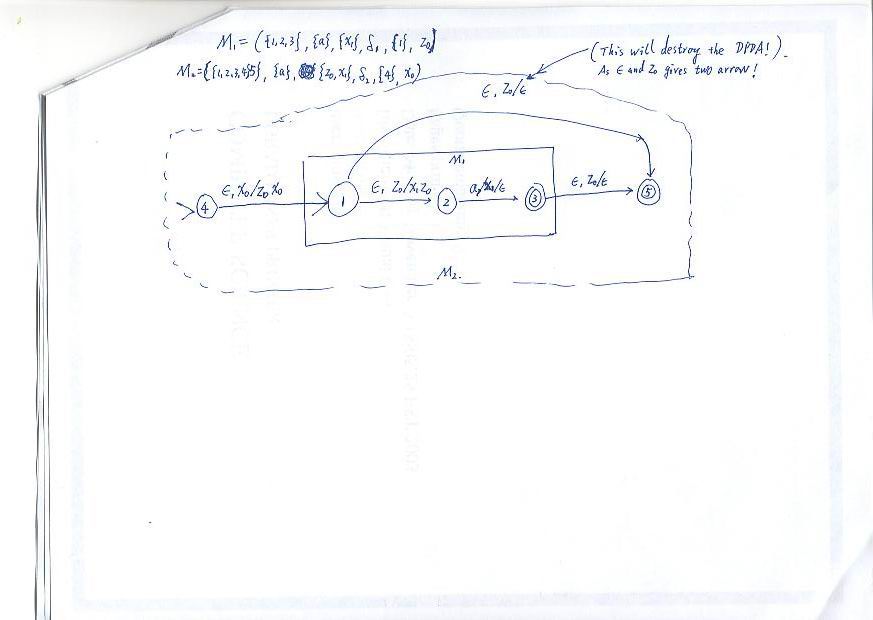 M₁ = ({1,2,3}, {a}, {X₁}, δ₁, {1}, Z₀)
M₂={{1,2,3,4}5}, {a}, {Z₀, X₁}, δ₂, {4}, X₀)
(This will destroy the DPDA!).
As ϵ and Z₀ gives two arrow!
ϵ, Z₀/ϵ
M₁
4
ϵ, X₀/Z₀X₀
1
ϵ, Z₀/X₁Z₀
2
3
ϵ, Z₀/ϵ
5
M₂.